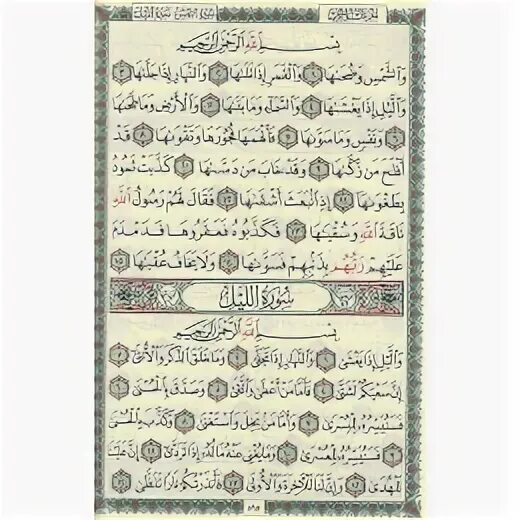 بِسْمِ ٱللَّهِ ٱلرَّحْمَٰنِ ٱلرَّحِيمِ
وَٱلشَّمْسِ وَضُحَىٰهَا ١ وَٱلْقَمَرِ إِذَا تَلَىٰهَا ٢ وَٱلنَّهَارِ إِذَا جَلَّىٰهَا ٣
وَٱلَّيْلِ إِذَا يَغْشَىٰهَا ٤ وَٱلسَّمَآءِ وَمَا بَنَىٰهَا ٥ وَٱلْأَرْضِ وَمَا طَحَىٰهَا
٦ وَنَفْسٍ وَمَا سَوَّىٰهَا ٧ فَأَلْهَمَهَا فُجُورَهَا وَتَقْوَىٰهَا ٨ قَدْ
أَفْلَحَ مَن زَكَّىٰهَا ٩ وَقَدْ خَابَ مَن دَسَّىٰهَا ١٠ كَذَّبَتْ ثَمُودُ
بِطَغْوَىٰهَآ ١١ إِذِ ٱنۢبَعَثَ أَشْقَىٰهَا ١٢ فَقَالَ لَهُمْ رَسُولُ ٱللَّهِ
نَاقَةَ ٱللَّهِ وَسُقْيَىٰهَا ١٣ فَكَذَّبُوهُ فَعَقَرُوهَا فَدَمْدَمَ
عَلَيْهِمْ رَبُّهُم بِذَنۢبِهِمْ فَسَوَّىٰهَا ١٤ وَلَا يَخَافُ عُقْبَىٰهَا ١٥
سُورَةُ اللَّيْلِ
بِسْمِ ٱللَّهِ ٱلرَّحْمَٰنِ ٱلرَّحِيمِ
وَٱلَّيْلِ إِذَا يَغْشَىٰ ١ وَٱلنَّهَارِ إِذَا تَجَلَّىٰ ٢ وَمَا خَلَقَ ٱلذَّكَرَ وَٱلْأُنثَىٰٓ ٣
إِنَّ سَعْيَكُمْ لَشَتَّىٰ ٤ فَأَمَّا مَنْ أَعْطَىٰ وَٱتَّقَىٰ ٥ وَصَدَّقَ بِٱلْحُسْنَىٰ ٦
فَسَنُيَسِّرُهُۥ لِلْيُسْرَىٰ ٧ وَأَمَّا مَنۢ بَخِلَ وَٱسْتَغْنَىٰ ٨ وَكَذَّبَ بِٱلْحُسْنَىٰ
٩ فَسَنُيَسِّرُهُۥ لِلْعُسْرَىٰ ١٠ وَمَا يُغْنِى عَنْهُ مَالُهُۥٓ إِذَا تَرَدَّىٰٓ ١١ إِنَّ عَلَيْنَا
لَلْهُدَىٰ ١٢ وَإِنَّ لَنَا لَلْـَٔاخِرَةَ وَٱلْأُولَىٰ ١٣ فَأَنذَرْتُكُمْ نَارًا تَلَظَّىٰ ١٤
٥٩٥